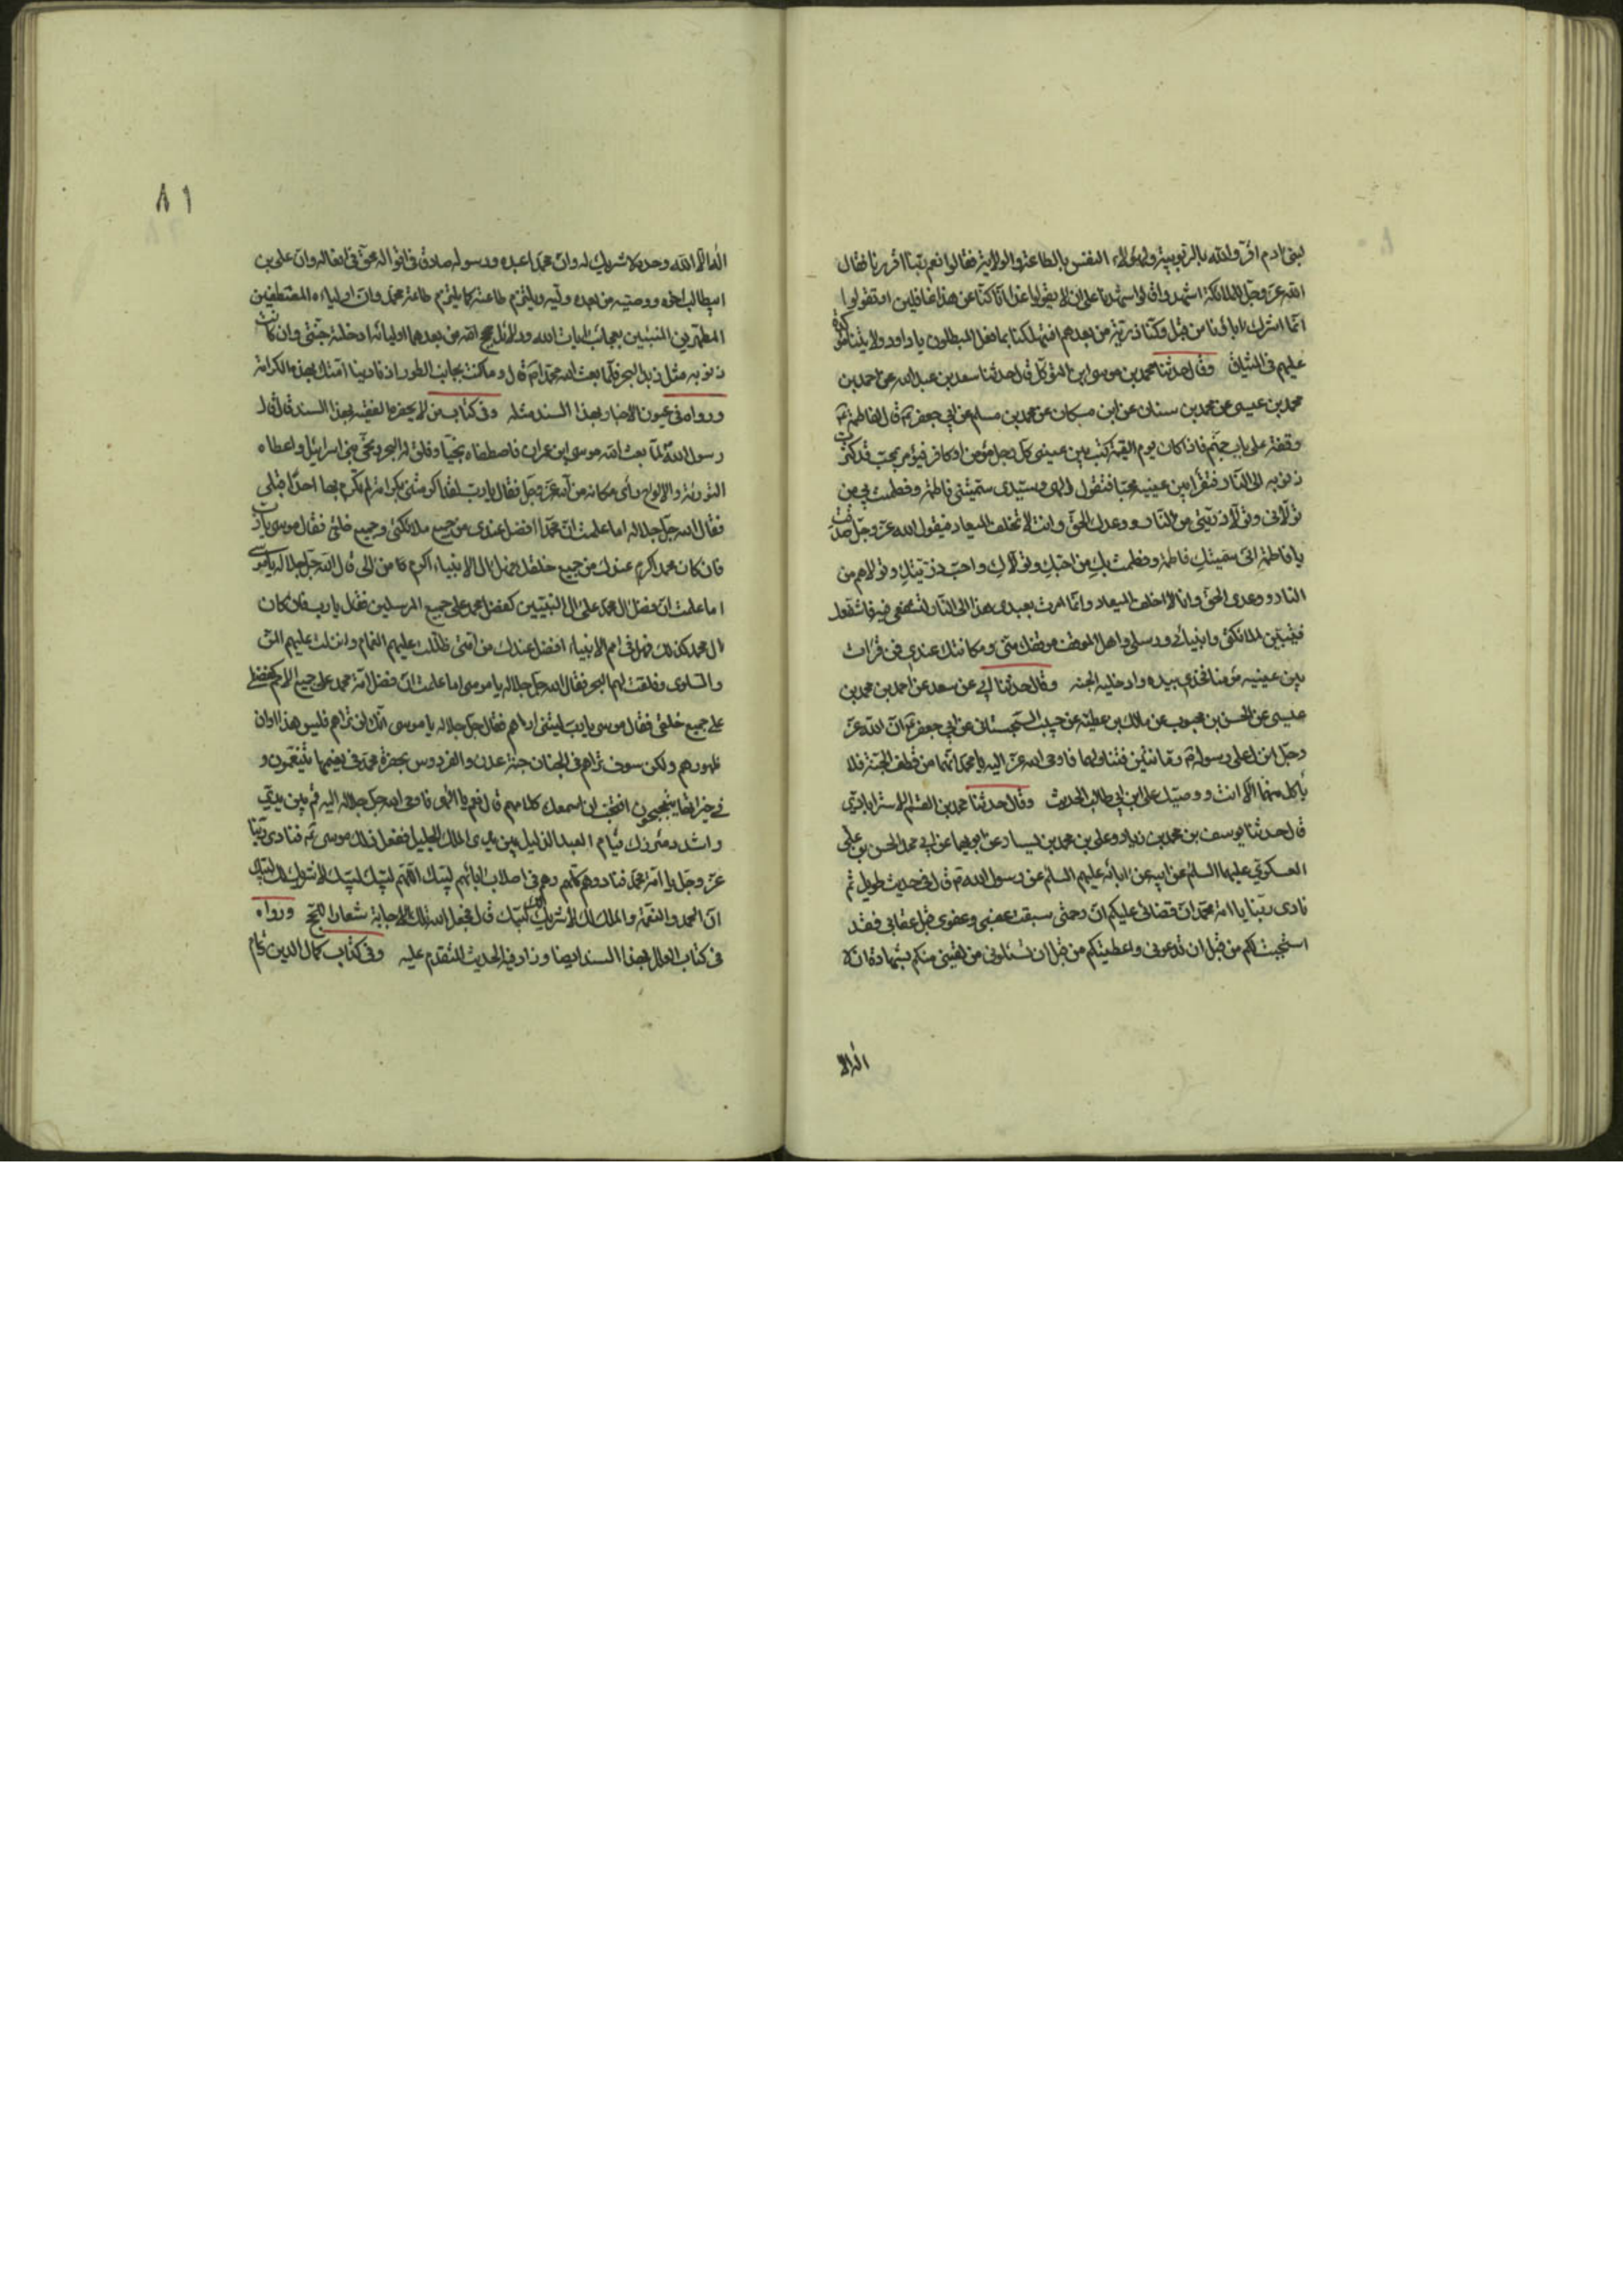 لبنى ادم اقروا لله بالربوبية ولهؤلاء النفس بالطاعة والولاية فقالوا نعم ربنا اقررنا فقال
الله عز وجل للملائكة اشهدوا قالوا شهدنا على ان لا يقولوا غدا انا كنا عن هذا غافلين او تقولوا
انما اشرك اباؤنا من قبل وكنا ذرية من بعدهم افتهلكنا بما فعل المبطلون يا داود ولايتنا مؤكدة
عليهم فى الميثاق وقال حدثنا محمد بن موسى ابن المتوكل قال حدثنا سعد بن عبد الله عن احمد بن
محمد بن عيسى عن محمد بن سنان عن ابن مسكان عن محمد بن مسلم عن ابي جعفر ع قال لفاطمة ع
وقفة على باب جهنم فاذا كان يوم القيمة كتب بين عينى كل رجل مؤمن او كافر فيؤمر بمحب قد كثرت
ذنوبه الى النار فتقرأ بين عينيه محبا فتقول الهى وسيدى سميتنى فاطمة وفطمت بي من
تولانى وتولا ذريتى من النار ووعدك الحق وانت لا تخلف الميعاد فيقول الله عز وجل صدقت
يا فاطمة انى سميتك فاطمة وفطمت بك من احبك وتولاك واحب ذريتك وتولاهم من
النار ووعدى الحق وانا لا اخلف الميعاد وانما امرت بعبدى هذا الى النار لتشفعى فيه فاشفعك
فيتبين لملائكتى وانبيائى ورسلى واهل الموقف موقفك منى ومكانتك عندى فمن قرأت
بين عينيه مؤمنا فخذى بيده وادخليه الجنة وقال حدثنا ابي عن سعد عن احمد بن محمد بن
عيسى عن الحسن بن محبوب عن مالك بن عطية عن حبيب السجستانى عن ابي جعفر ع ان الله عز
وجل انزل على رسوله ص رمانتين فتناولهما فاوحى الله عز اليه يا محمد انهما من قطف الجنة فلا
ياكل منهما الا انت ووصيك على ابن ابي طالب الحديث وقال حدثنا محمد بن القسم الاسترابادى
قال حدثنا يوسف بن محمد بن زياد وعلى بن محمد بن يسار عن ابويهما عن ابي محمد الحسن بن على
العسكرى عليهما السلم عن ابيه عن ابائه عليهم السلم عن رسول الله ص قال فى حديث طويل ثم
نادى ربنا يا امة محمد ان قضائى عليكم ان رحمتى سبقت غضبى وعفوى قبل عقابى فقد
استجبت لكم من قبل ان تدعونى واعطيتكم من قبل ان تسئلونى من لقينى منكم بشهادة ان لا
اله الا
٨١
اله الا الله وحده لا شريك له وان محمدا عبده ورسوله صادق فى اقواله محق فى افعاله وان على بن
ابيطالب اخوه ووصيه من بعده ووليه ويلتزم طاعته كما يلتزم طاعة محمد وان اولياءه المصطفين
المطهرين المنبئين بعجائب ايات الله ودلائل حجج الله من بعدهما اوليائه ادخلته جنتى وان كانت
ذنوبه مثل زبد البحر فلما بعث الله محمدا ص قال وما كنت بجانب الطور اذ نادينا امتك بهذه الكرامة
ورواه فى عيون الاخبار بهذا السند مثله وفى كتاب من لا يحضره الفقيه بهذا السند قال قال
رسول الله لما بعث الله موسى ابن عمران فاصطفاه نجيا وفلق له البحر ونجى بنى اسرائيل واعطاه
التورية والالواح راى مكانه من الله عز وجل فقال يا رب لقد اكرمتنى بكرامة لم تكرم بها احدا قبلى
فقال الله جل جلاله اما علمت ان محمدا افضل عندى من جميع ملائكتى وجميع خلقى فقال موسى يا رب
فان كان محمد اكرم عندك من جميع خلقك فهل فى ال الانبياء اكرم من الى قال الله جل جلاله يا موسى
اما علمت ان فضل ال محمد على ال النبيين كفضل محمد على جميع المرسلين فقال يا رب فان كان
ال محمد كذلك فهل فى امم الانبياء افضل عندك من امتى ظللت عليهم الغمام وانزلت عليهم المن
والسلوى وفلقت لهم البحر فقال الله جل جلاله يا موسى اما علمت ان فضل امة محمد على جميع الامم كفضلى
على جميع خلقى فقال موسى يا رب ليتنى اراهم فقال جل جلاله يا موسى انك لن تراهم فليس هذا اوان
ظهورهم ولكن سوف تراهم فى الجنان جنة عدن والفردوس بحضرة محمد فى نعيمها يتنعمون و
فى خيراتها يتبجحون افتحب ان اسمعك كلامهم قال نعم يا الهى فاوحى الله جل جلاله اليه قم بين يدى
واشدد مئزرك قيام العبد الذليل بين يدى الملك الجليل ففعل ذلك موسى ع فنادى ربنا
عز وجل يا امة محمد فنادوه كلهم وهم فى اصلاب ابائهم لبيك اللهم لبيك لبيك لا شريك لك لبيك
ان الحمد والنعمة والملك لك لا شريك لك لبيك قال فجعل الله تلك الاجابة شعارا للحج ورواه
فى كتاب العلل بهذا السند ايضا وزاد فيه الحديث المتقدم عليه وفى كتاب كمال الدين تمام